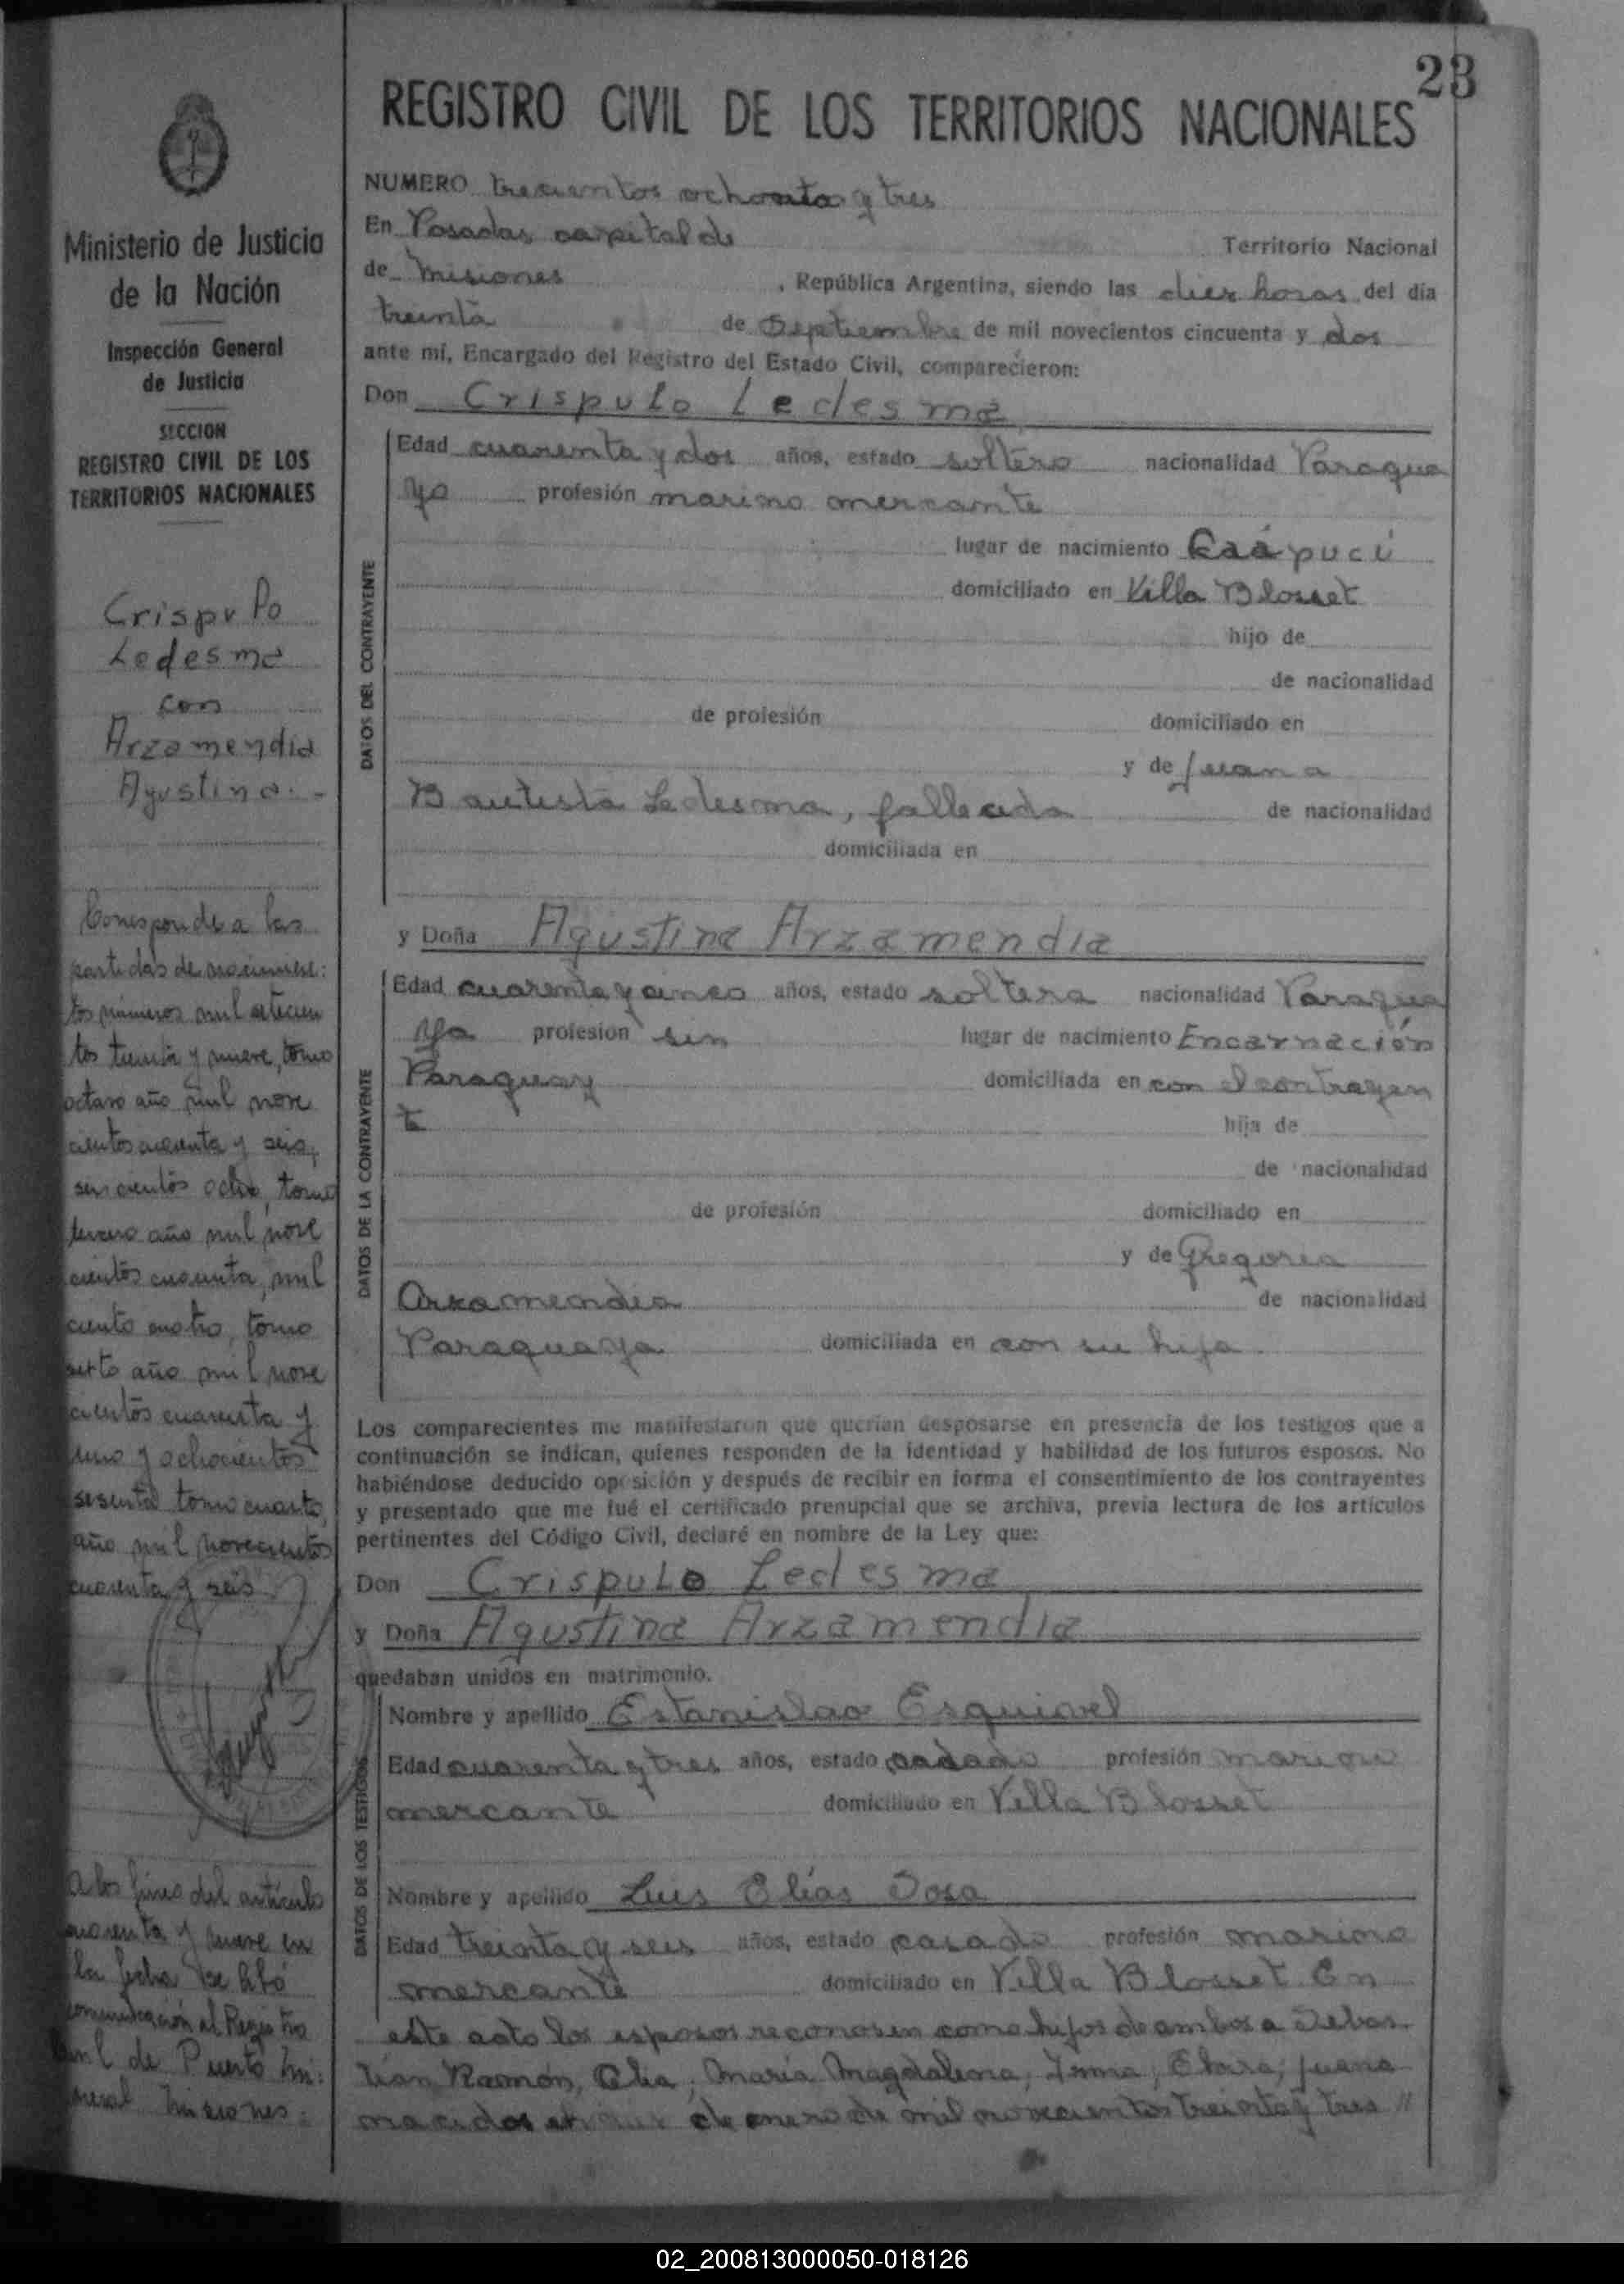 23
REGISTRO CIVIL DE LOS TERRITORIOS NACIONALES
Ministerio de Justicia
de la Nación
Inspección General
de Justicia
SECCION
REGISTRO CIVIL DE LOS
TERRITORIOS NACIONALES
Crispulo
Ledesma
con
Arzamendia
Agustina.-
Corresponde a las
partidas de nacimien:
tos números mil setecien
tos treinta y nueve, tomo
octavo año mil nove
cientos cuarenta y seis,
seiscientos ocho, tomo
tercero año mil nove
cientos cuarenta, mil
ciento cuatro, tomo
sexto año mil nove
cientos cuarenta y
uno y ochocientos
sesenta tomo cuarto,
año mil novecientos
cuarenta y seis
A los fines del artículo
cuarenta y nueve en
la fecha se libó
comunicación al Registro
Civil de Puerto Mi:
neral Misiones.
NUMERO trecientos ochenta y tres
En Posadas capital de Territorio Nacional
de Misiones , República Argentina, siendo las diez horas del día
treinta de Septiembre de mil novecientos cincuenta y dos
ante mí, Encargado del Registro del Estado Civil, comparecieron:
Don Crispulo Ledesma
DATOS DEL CONTRAYENTE
Edad cuarenta y dos años, estado soltero nacionalidad Paragua
yo profesión marino mercante
lugar de nacimiento Caápucú
domiciliado en Villa Blosset
hijo de
de nacionalidad
de profesión domiciliado en
y de Juana
Bautista Ledesma, fallecida de nacionalidad
domiciliada en
y Doña Agustina Arzamendia
DATOS DE LA CONTRAYENTE
Edad cuarenta y cinco años, estado soltera nacionalidad Paragua
ya profesion sin lugar de nacimiento Encarnación
Paraguay domiciliada en con el contrayen
te hija de
de nacionalidad
de profesión domiciliado en
y de Gregoria
Arzamendia de nacionalidad
Paraguaya domiciliada en con su hija.
Los comparecientes me manifestaron que querían desposarse en presencia de los testigos que a
continuación se indican, quienes responden de la identidad y habilidad de los futuros esposos. No
habiéndose deducido oposición y después de recibir en forma el consentimiento de los contrayentes
y presentado que me fué el certificado prenupcial que se archiva, previa lectura de los artículos
pertinentes del Código Civil, declaré en nombre de la Ley que:
Don Crispulo Ledesma
y Doña Agustina Arzamendia
quedaban unidos en matrimonio.
DATOS DE LOS TESTIGOS
Nombre y apellido Estanislao Esquivel
Edad cuarenta y tres años, estado casado profesión marino
mercante domiciliado en Villa Blosset
Nombre y apellido Luis Elías Sosa
Edad treinta y seis años, estado casado profesión marino
mercante domiciliado en Villa Blosset En
este acto los esposos reconosen como hijos de ambos a Sebas
tián Ramón, Elia, María Magdalena, Irma, Juana
nacidos de enero de mil novecientos treinta y tres //
02_200813000050-018126